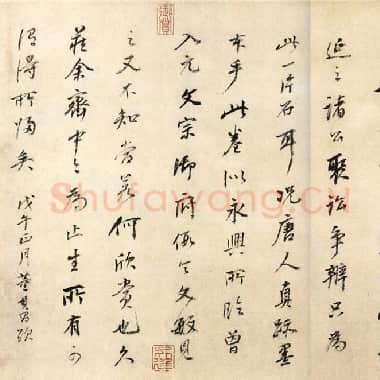 延之諸公聚訟爭辯只為
此一片石耳況唐人真跡墨
本乎此卷似永興所臨曾
入元文宗御府假令文敏見
之又不知當若何欣賞也久
藏余齋中今為止生所有可
謂得所歸矣 戊午正月董其昌題
Shufawang.CN